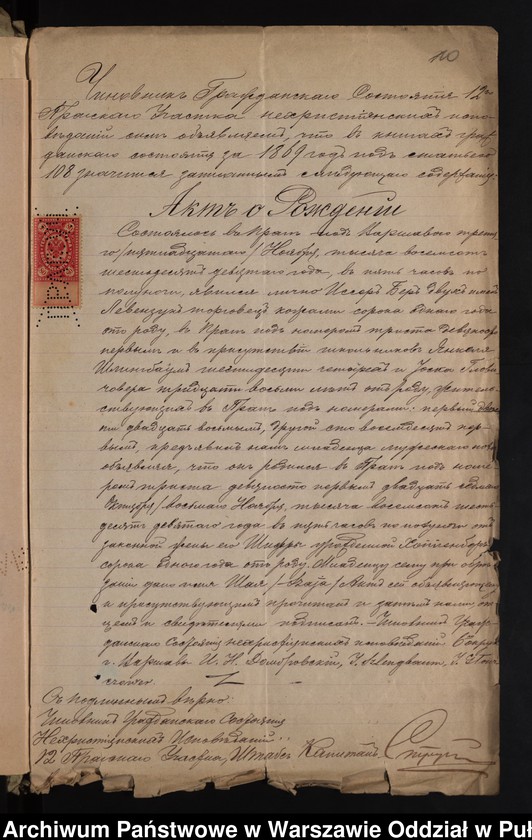 Чиновникъ Гражданскаго Состоянія 12го
Пражскаго Участка нехристіанскихъ испо-
вѣданій симъ объявляетъ, что въ книгахъ граж
данскаго состоянія за 1869 годъ подъ статьею
108 значится записанный слѣдующаго содержанія:
Актъ о Рожденіи
Состоялось въ Прагѣ подъ Варшавою третья
го /пятнадцатаго/ Ноября, тысяча восемсотъ
шестьдесятъ девятаго года, въ пять часовъ по
полудни, явился лично Іссоръ Беръ двухъ именъ
Левензукъ торговецъ кожами сорока одного года
отъ роду, въ Прагѣ подъ номеромъ триста девяносто
первымъ и въ присутствіи школьниковъ Янкеля
шестидесяти четырехъ и Іоска
тридцати восьми лѣтъ отъ роду, жительствующихъ въ Прагѣ подъ номерами: первый
двадцать восьмымъ, другой сто восемдесятъ пер
вымъ, предъявилъ намъ младенца мужескаго пола
объявляя, что онъ родился въ Прагѣ подъ номе
ромъ триста девяносто первымъ двадцать седьмаго
Октября /восьмаго Ноября, тысяча восемсотъ шесть
десятъ девятаго года въ пять часовъ по полудни отъ
законной жены его Шифры урожденной
сорока одного года отъ роду. Младенцу сему при обрѣ
заніи дано имя Шая /Szaja/ Актъ сей объявляющему
и присутствующимъ прочитанъ и затѣмъ нами, от
цемъ и свидѣтелями подписанъ. - Чиновникъ Граж
данскаго Состоянія нехристіанскихъ исповѣданій
г. Варшавы И. Н. Домбровскій,
Съ подлиннымъ вѣрно:
Чиновникъ Гражданскаго Состоянія
Нехристіанскихъ Исповѣданій
12 Пражскаго Участка, Штабсъ Капитанъ
Archiwum Państwowe w Warszawie Oddział w Puł